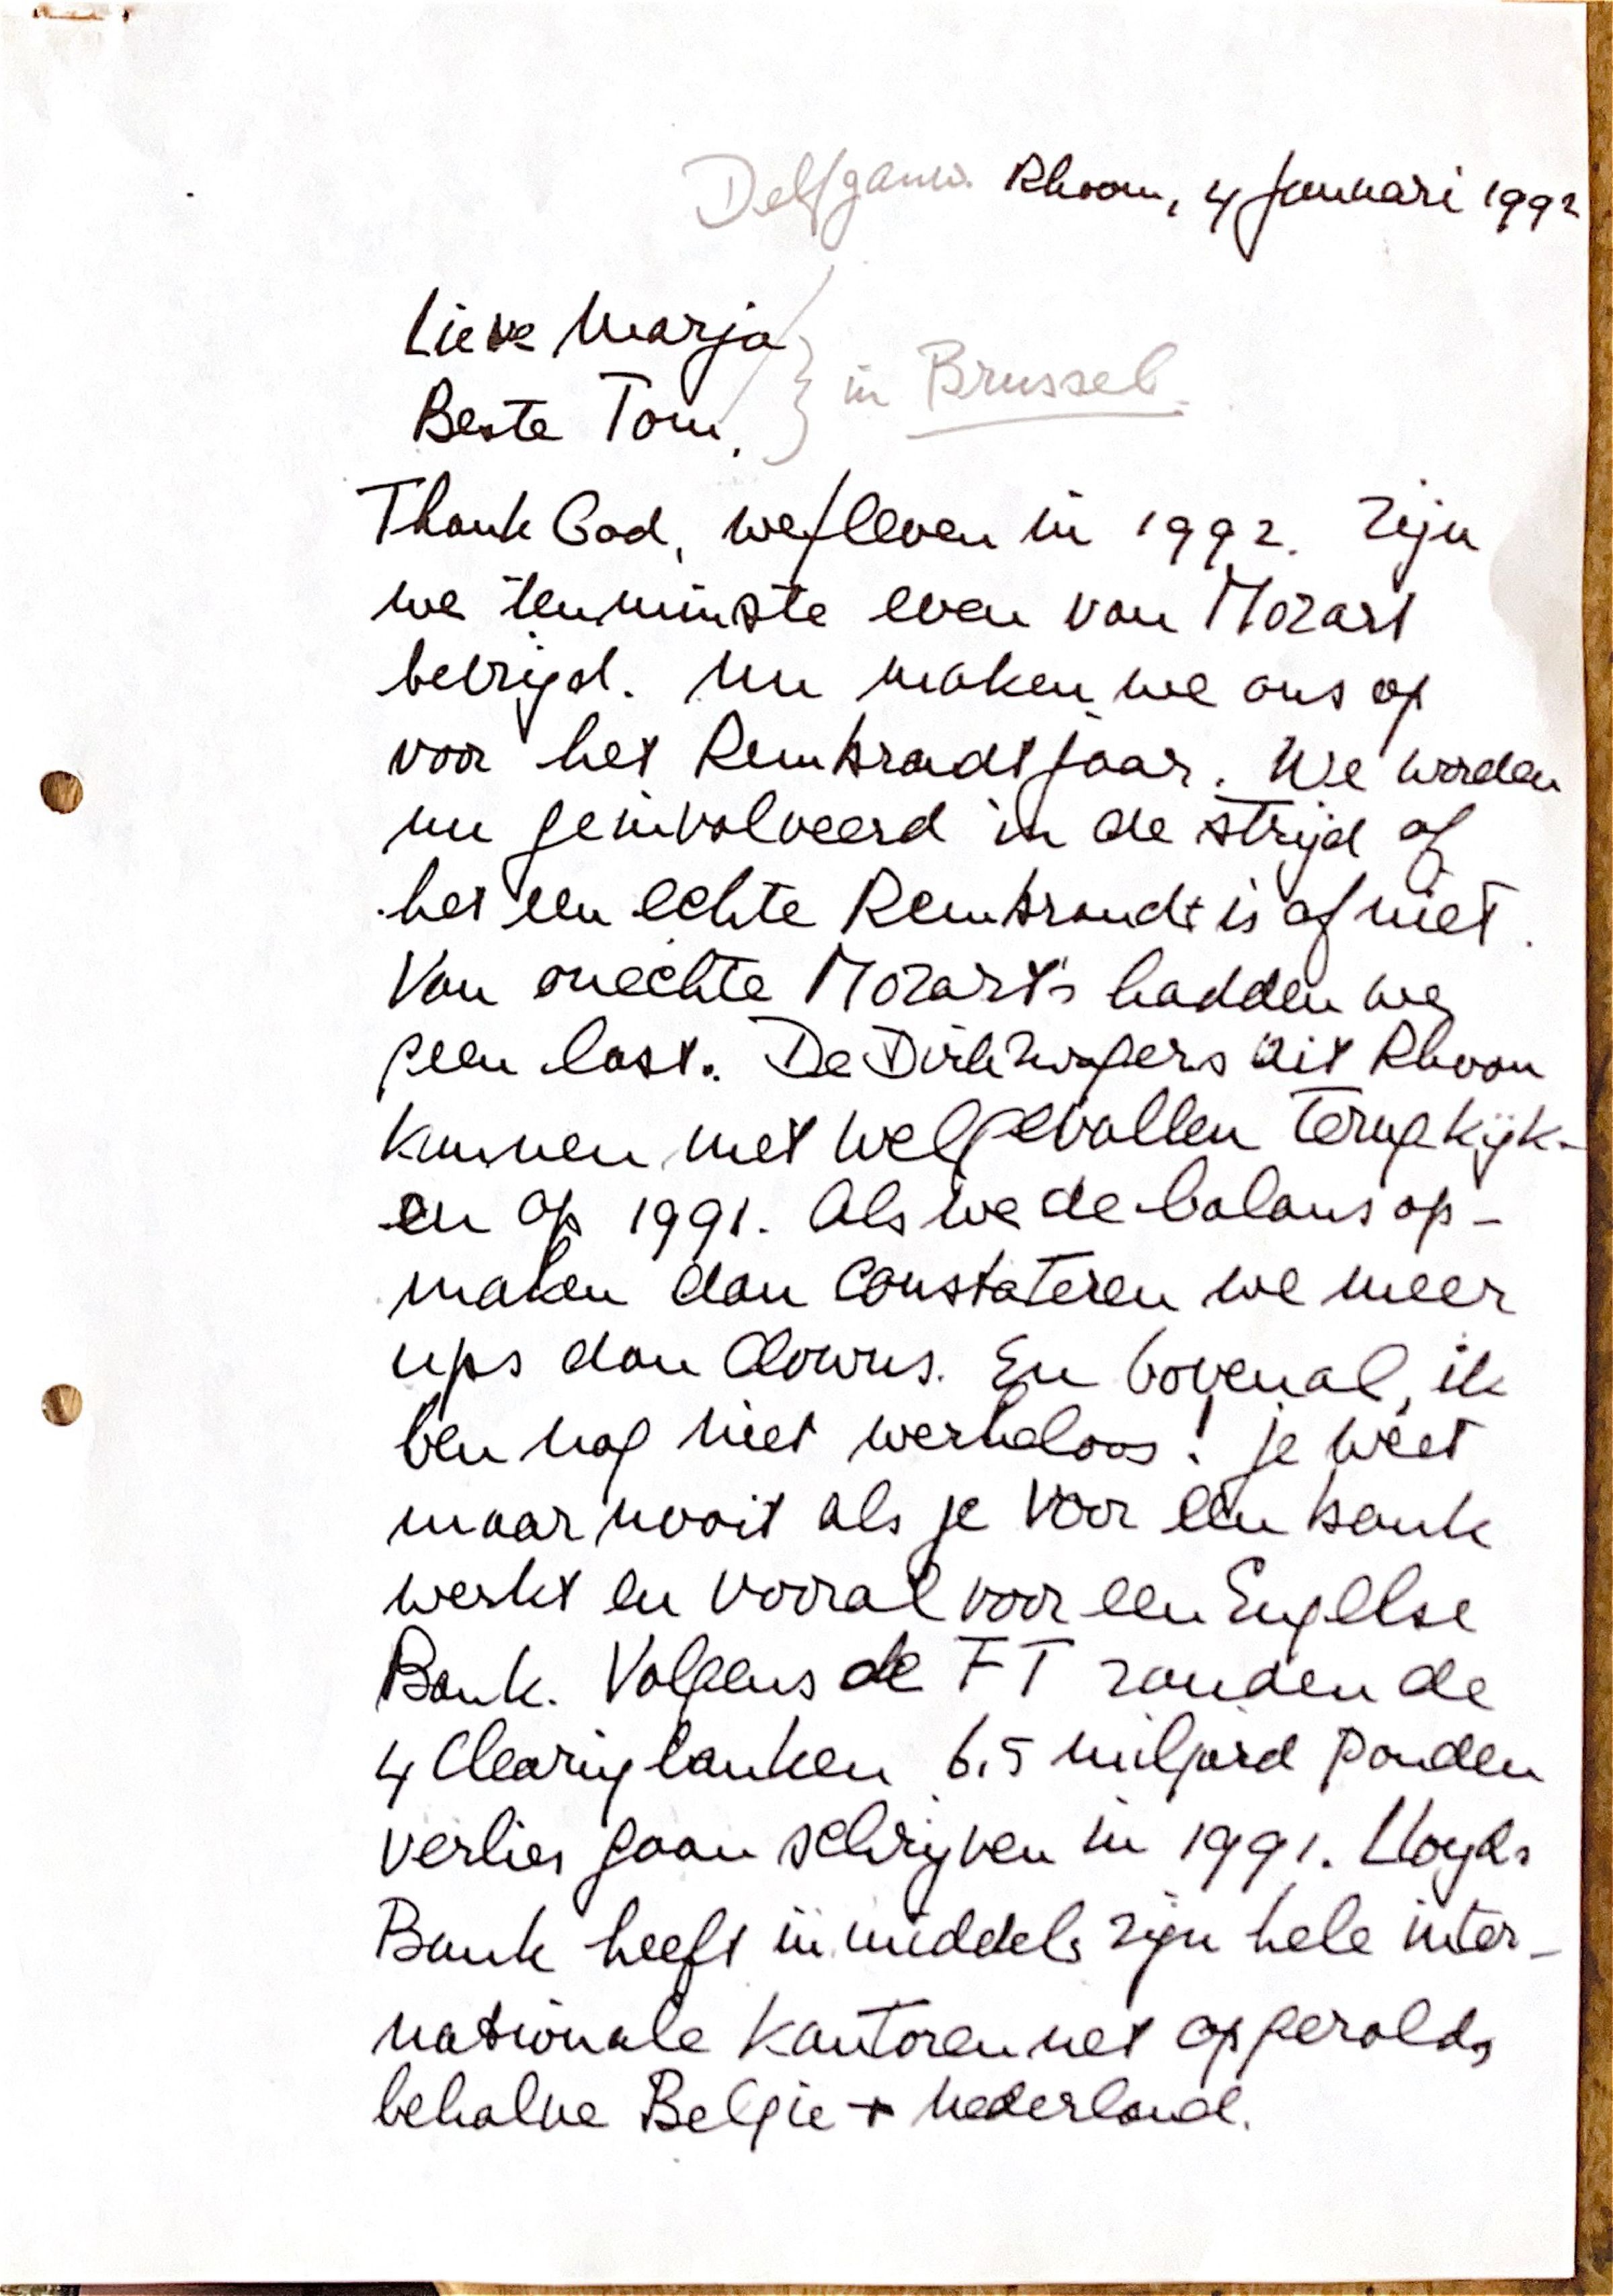 Delfgauw. Rhoon, 4 Januari 1992
Lieve Marja
Beste Tom,
} in Brussel.
Thank God, we leven in 1992. Zijn
we tenminste even van Mozart
bevrijd. Nu maken we ons op
voor het Rembrandtjaar. We worden
nu geïnvolveerd in de strijd of
het een echte Rembrandt is of niet.
Van onechte Mozart's hadden we
geen last. De Dirkzwagers uit Rhoon
kunnen met welgevallen terugkijk-
en op 1991. Als we de balans op-
maken dan constateren we meer
ups dan downs. En bovenal, ik
ben nog niet werkeloos! Je weet
maar nooit als je voor een bank
werkt en vooral voor een Engelse
Bank. Volgens de FT zouden de
4 Clearing banken 6,5 miljard ponden
verlies gaan schrijven in 1991. Lloyds
Bank heeft inmiddels zijn hele inter-
nationale kantorennet opgerold,
behalve Belgie + Nederland.